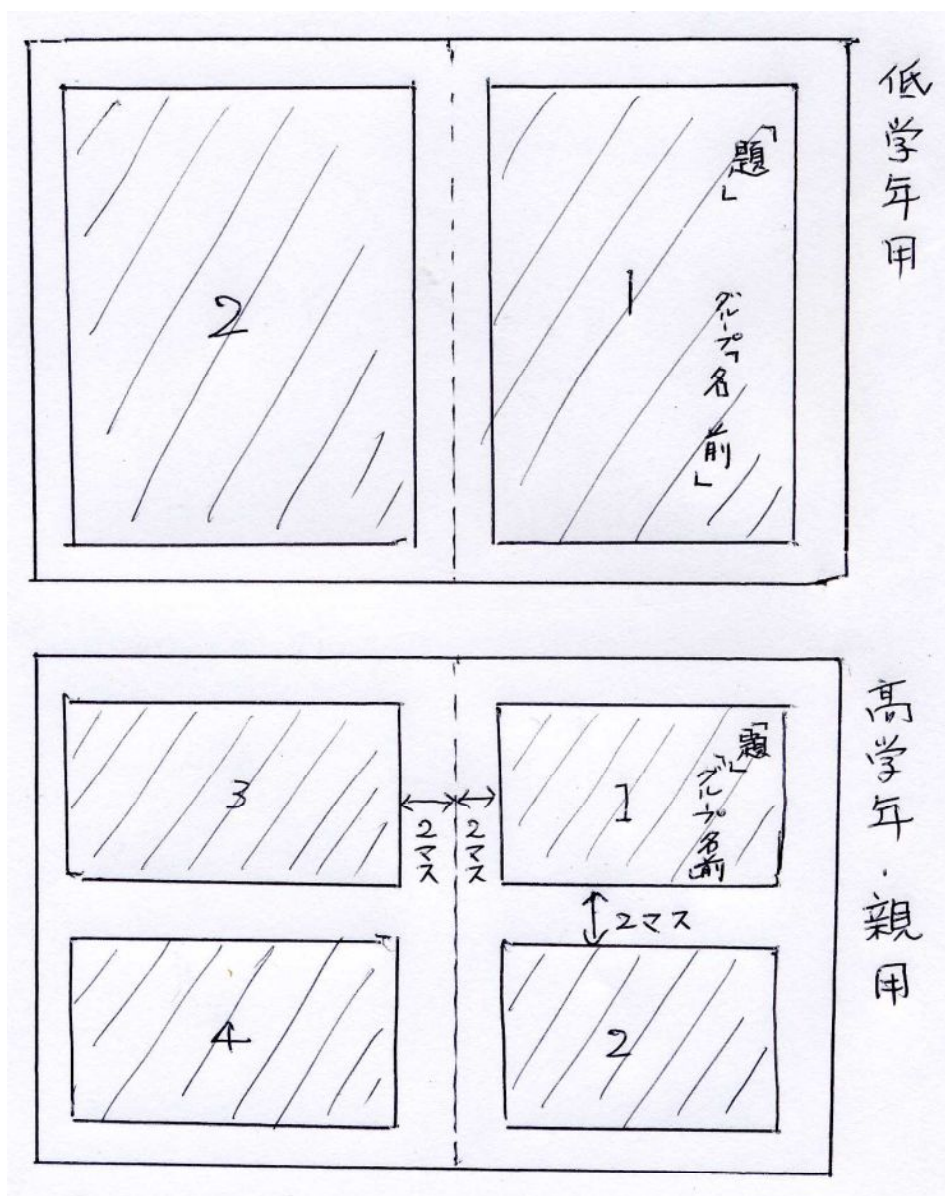 低学年用
「題」
グループ名
「名前」
1
2
高学年・親用
「題」
グループ名
「名前」
1
2マス
2
2マス
2マス
3
4